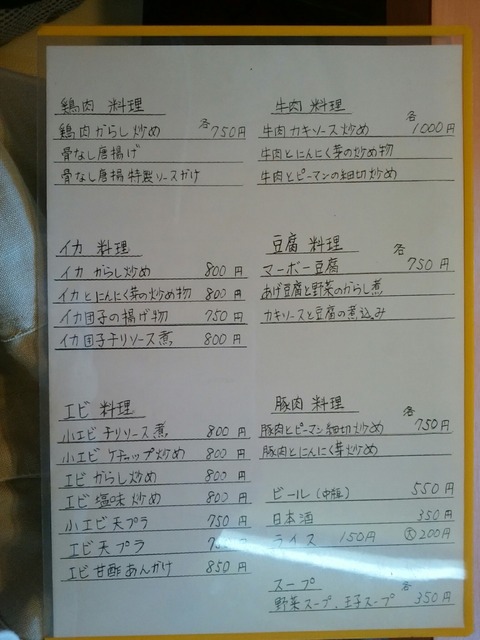 鶏肉 料理
鶏肉 がらし炒め 各 750円
骨なし唐揚げ
骨なし唐揚 特製ソースがけ
イカ 料理
イカ がらし炒め 800 円
イカ とにんにく芽の炒め物 800 円
イカ団子の揚げ物 750 円
イカ団子チリソース煮 800 円
エビ 料理
小エビ チリソース煮 800 円
小エビ ケチャップ炒め 800 円
エビ がらし炒め 800 円
エビ 塩味 炒め 800 円
小エビ 天プラ 750 円
エビ 天プラ 円
エビ 甘酢 あんかけ 850 円
牛肉 料理
牛肉 カキソース炒め 各 1000円
牛肉とにんにく芽の炒め物
牛肉とピーマンの細切炒め
豆腐 料理
マーボー豆腐 各 750 円
あげ豆腐と野菜のがらし煮
カキソースと豆腐の煮込み
豚肉 料理
豚肉とピーマン細切炒め 各 750円
豚肉とにんにく芽炒め
ビール (中瓶) 550 円
日本酒 350 円
ライス 150円 大 200円
スープ
野菜スープ、玉子スープ 各 350 円